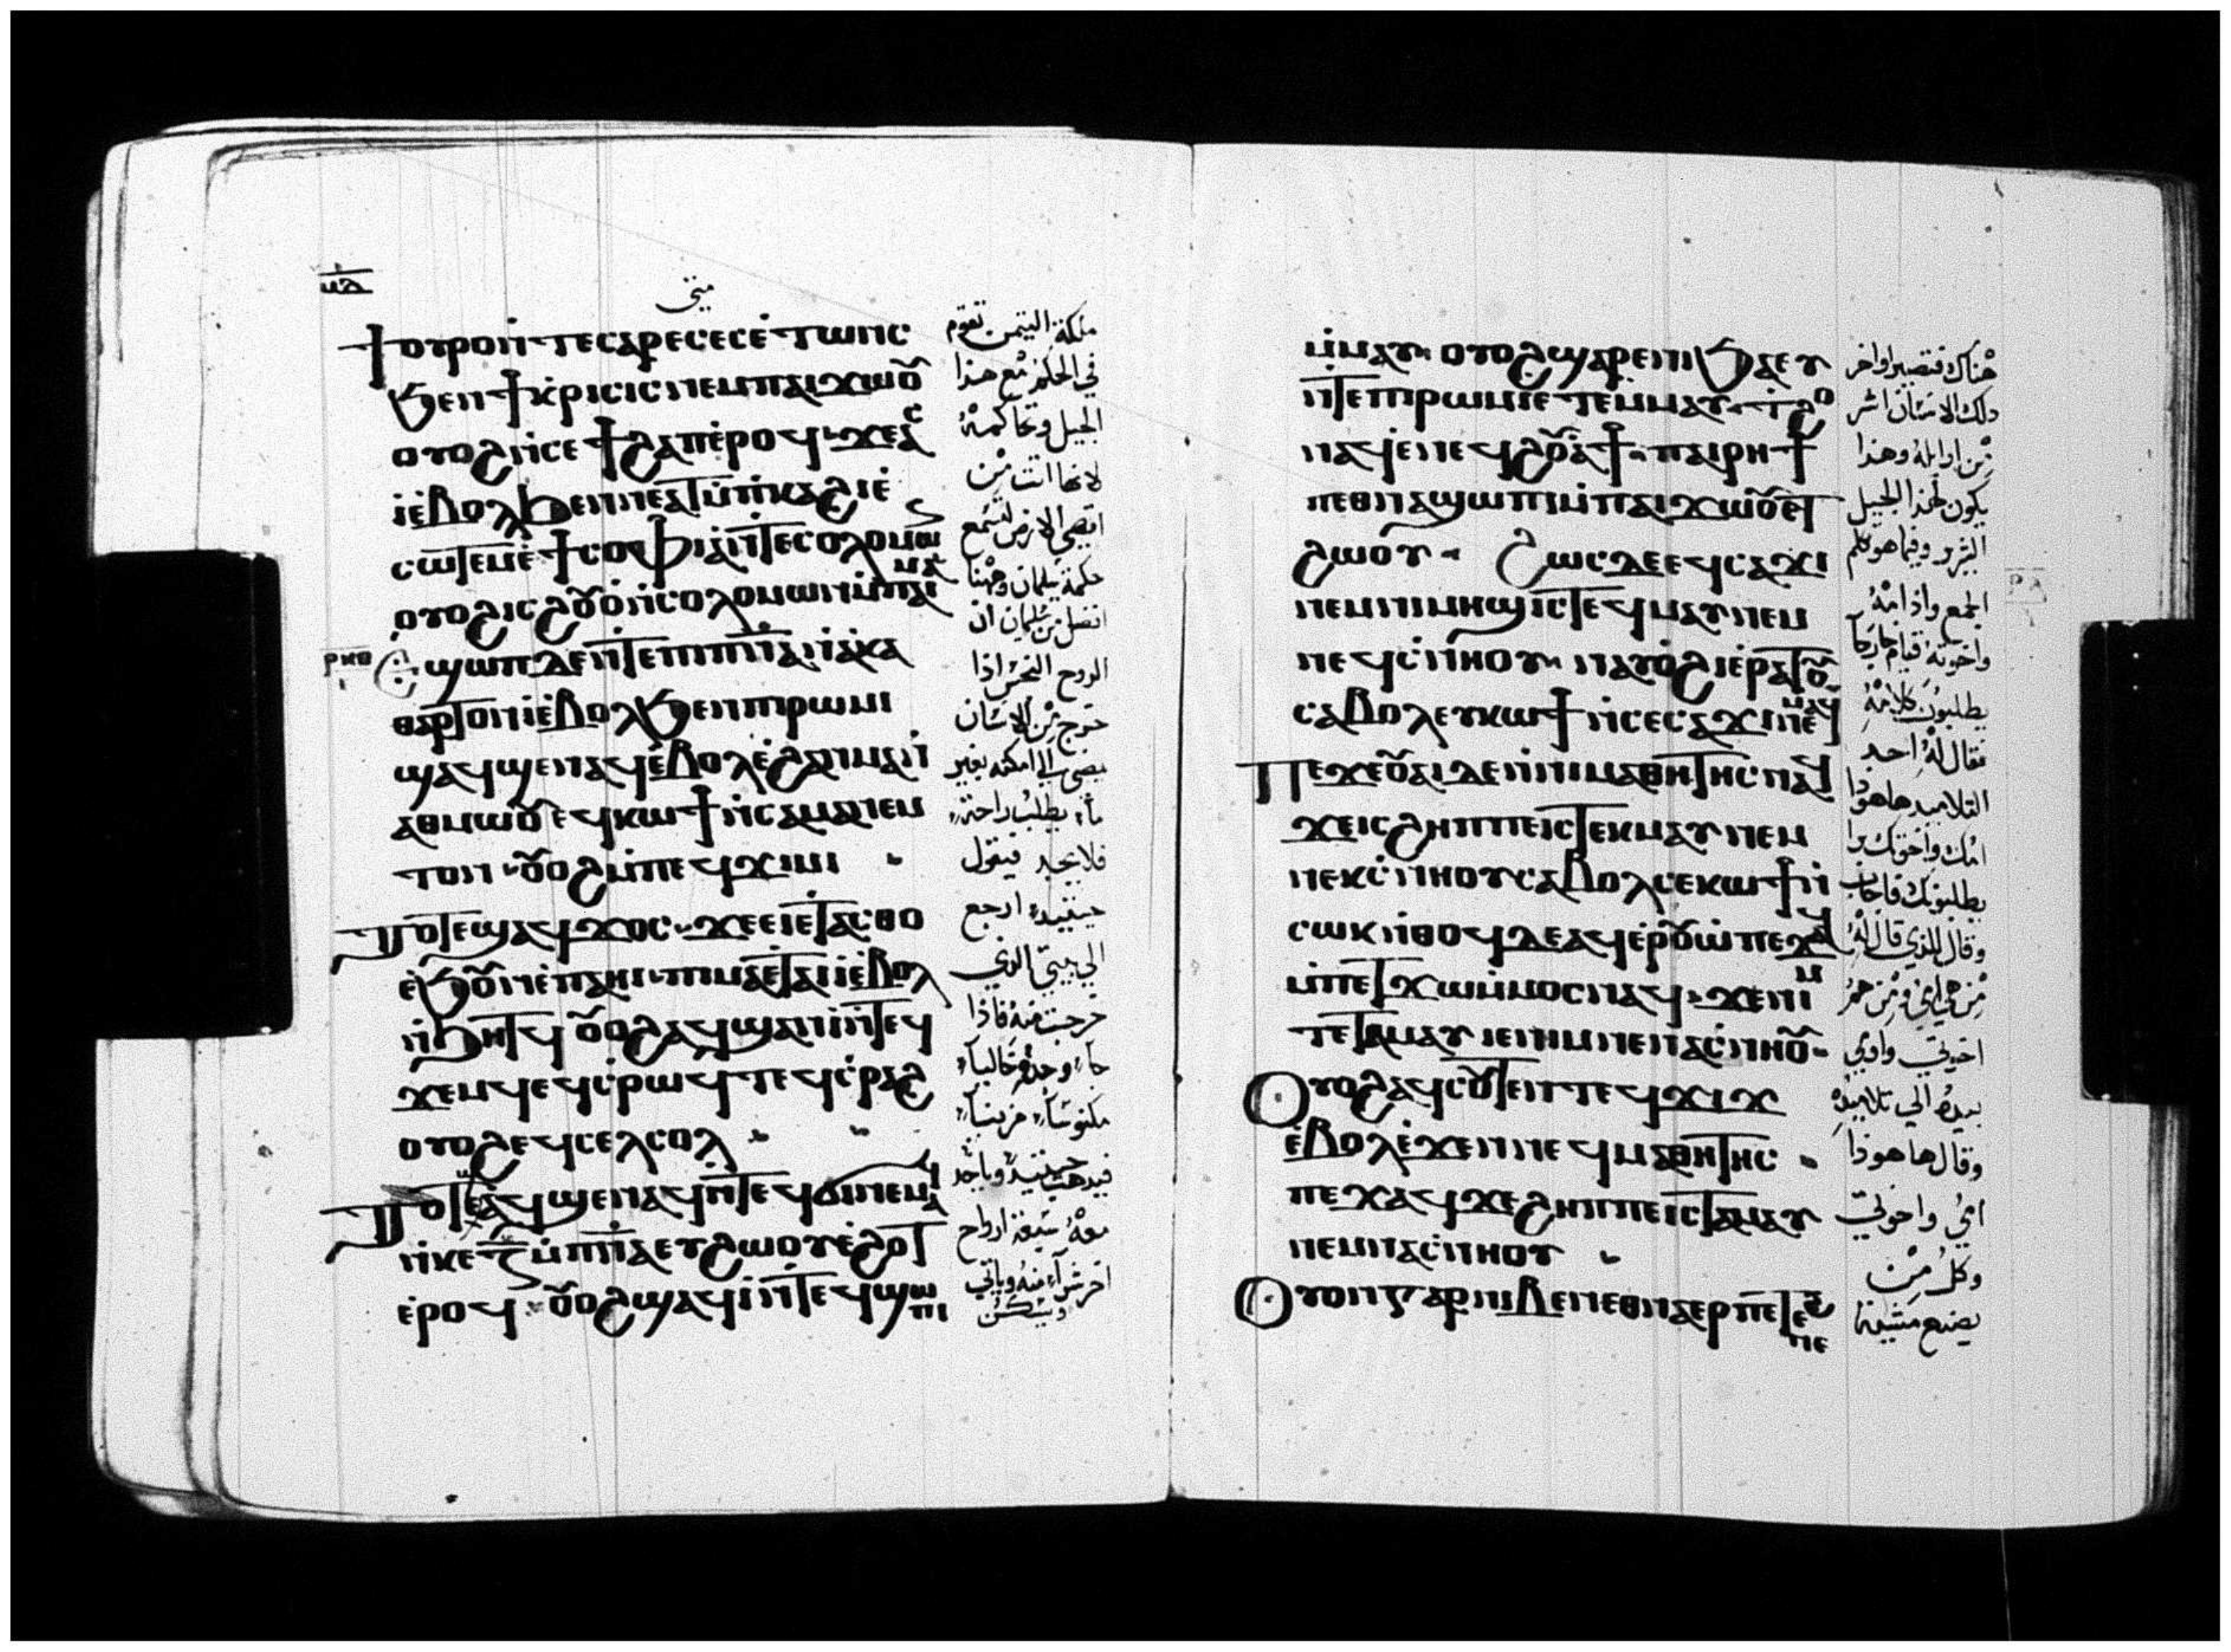 ⲙⲁ
متى
ϯⲟⲩⲣⲟⲛⲧⲉⲥⲁⲣⲉⲥⲉⲥⲉⲧⲱⲛⲥ
ϧⲉⲛϯⲕⲣⲓⲥⲓⲥⲛⲉⲙⲡⲁⲓϫⲱⲟⲩ
ⲟⲩⲟϩⲛⲥⲉϯϩⲁⲡⲉⲣⲟϥϫⲉⲁⲥ
ⲓⲉⲃⲟⲗϧⲉⲛⲛⲉⲁⲧⲙⲡⲕⲁϩⲓⲉ
ⲥⲱⲧⲉⲙⲉϯⲥⲟⲫⲓⲁⲛⲧⲉⲥⲟⲗⲟⲙⲱⲛ
ⲟⲩⲟϩⲓⲥϩⲟⲩⲟⲛⲥⲟⲗⲟⲙⲱⲛⲙⲡⲁⲓⲙⲁ
ⲣⲕⲑ
ⲉϣⲱⲡⲇⲉⲛⲧⲉⲡⲓⲡⲛⲁⲛⲁⲕⲁ
ⲑⲁⲣⲧⲟⲛⲓⲉⲃⲟⲗϧⲉⲛⲡⲓⲣⲱⲙⲓ
ϣⲁϥϣⲉⲛⲁϥⲉⲃⲟⲗⲉϩⲁⲛⲙⲁⲛ
ⲁⲑⲙⲱⲟⲩⲉϥⲕⲱϯⲛⲥⲁⲙⲁⲛⲉⲙ
ⲧⲟⲛⲟⲩⲟϩⲙⲡⲉϥϫⲓⲙⲓ
ⲧⲟⲧⲉϣⲁϥϫⲟⲥϫⲉⲉⲓⲉⲧⲁⲥⲑⲟ
ⲉϧⲟⲩⲛⲉⲡⲁⲏⲓⲡⲓⲙⲁⲉⲧⲁⲓⲓⲉⲃⲟⲗ
ⲛϧⲏⲧϥⲟⲩⲟϩⲁϥϣⲁⲛⲓⲛⲧⲉϥ
ϫⲉⲙϥⲉϥⲥⲣⲱϥⲧⲉϥⲥⲣⲁϩ
ⲟⲩⲟϩⲉϥⲥⲉⲗⲥⲱⲗ
ⲧⲟⲧⲉϣⲁϥϣⲉⲛⲁϥⲛⲧⲉϥϭⲓⲛⲉⲙⲁϥ
ⲛⲕⲉⲍⲙⲡⲛⲁⲉⲩϩⲱⲟⲩⲉϩⲟⲧ
ⲉⲣⲟϥⲟⲩⲟϩϣⲁϥⲓⲛⲧⲉϥϣⲱⲡⲓ
ملكة التيمن تقوم
في الحكم مع هذا
الجيل وتحاكمه
لانها اتت من
اقصى الارض لتسمع
حكمة سليمان وههنا
افضل من سليمان ان
الروح النجس اذا
خرج من الانسان
يمضي الى امكنه بغير
ماء يطلب راحة
فلا يجد فيقول
حينيذ ارجع
الى بيتي الذي
خرجت منه فاذا
جاء وجده خاليا
مكنوسا مزينا
فيذهب حينيذ وياخذ
معه سبعة ارواح
اخر شر منه وياتي
ويسكن
ⲙⲙⲁⲩⲟⲩⲟϩϣⲁⲣⲉⲛⲓϧⲁⲉⲩ
ⲛⲧⲉⲡⲓⲣⲱⲙⲓⲉⲧⲉⲙⲙⲁⲩⲉⲣϩⲟ
ⲛⲁϥⲉⲛⲉϥϩⲟⲩⲁϯⲡⲁⲓⲣⲏϯ
ⲡⲉⲑⲛⲁϣⲱⲡⲓⲙⲡⲁⲓϫⲱⲟⲩⲉⲧ
ϩⲱⲟⲩ ϩⲱⲥⲇⲉⲉϥⲥⲁϫⲓ
ⲛⲉⲙⲛⲓⲙⲏϣⲓⲥⲧⲉϥⲙⲁⲩⲛⲉⲙ
ⲛⲉϥⲥⲛⲏⲟⲩⲛⲁⲩⲟϩⲓⲉⲣⲁⲧⲟⲩ
ⲥⲁⲃⲟⲗⲉⲩⲕⲱϯⲛⲥⲉⲥⲁϫⲓⲛⲉⲙⲁϥ
ⲡⲉϫⲉⲟⲩⲁⲓⲇⲉⲛⲛⲓⲙⲁⲑⲏⲧⲏⲥⲛⲁϥ
ϫⲉⲓⲥϩⲏⲡⲡⲉⲓⲥⲧⲉⲕⲙⲁⲩⲛⲉⲙ
ⲛⲉⲕⲥⲛⲏⲟⲩⲥⲁⲃⲟⲗⲥⲉⲕⲱϯⲛ
ⲥⲱⲕⲛⲑⲟϥⲇⲉⲁϥⲉⲣⲟⲩⲱⲡⲉϫⲁϥ
ⲙⲡⲉⲧϫⲱⲙⲙⲟⲥⲛⲁϥϫⲉⲛⲓⲙ
ⲧⲉⲧⲁⲙⲁⲩⲓⲉⲛⲓⲙⲛⲉⲛⲁⲥⲛⲏⲟⲩ
ⲟⲩⲟϩⲁϥⲥⲟⲩⲧⲉⲛⲧⲉϥϫⲓϫ
ⲉⲃⲟⲗⲉϫⲉⲛⲛⲉϥⲙⲁⲑⲏⲧⲏⲥ
ⲡⲉϫⲁϥϫⲉϩⲏⲡⲡⲉⲓⲥⲧⲁⲙⲁⲩ
ⲛⲉⲙⲛⲁⲥⲛⲏⲟⲩ
ⲟⲩⲟⲛⲅⲁⲣⲛⲓⲃⲉⲛⲉⲑⲛⲁⲉⲣⲡⲉⲧⲉϩⲛⲉ
هناك فتصير اواخر
ذلك الانسان اشر
من اوايله وهذا
يكون لهذا الجيل
الشرير وفيما هو تكلم
الجمع واذا امه
واخوته قيام خارجا
يطلبون كلامه
فقال له احد
التلاميد ها هوذا
امك واخوتك برا
يطلبونك فاجاب
وقال للذي قال له
من هي امي ومن هم
اخوتي واومى
بيده الى تلاميده
وقال ها هوذا
امي واخوتي
وكل من
يصنع مشية